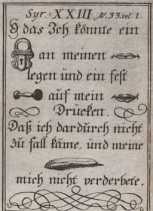 Syr. XXIII
O das Ich könnte ein
an meinen
legen und ein fest
auf mein
Drucken.
Daß ich dardurch nicht
zu fall käme, und meine
mich nicht verderbete.